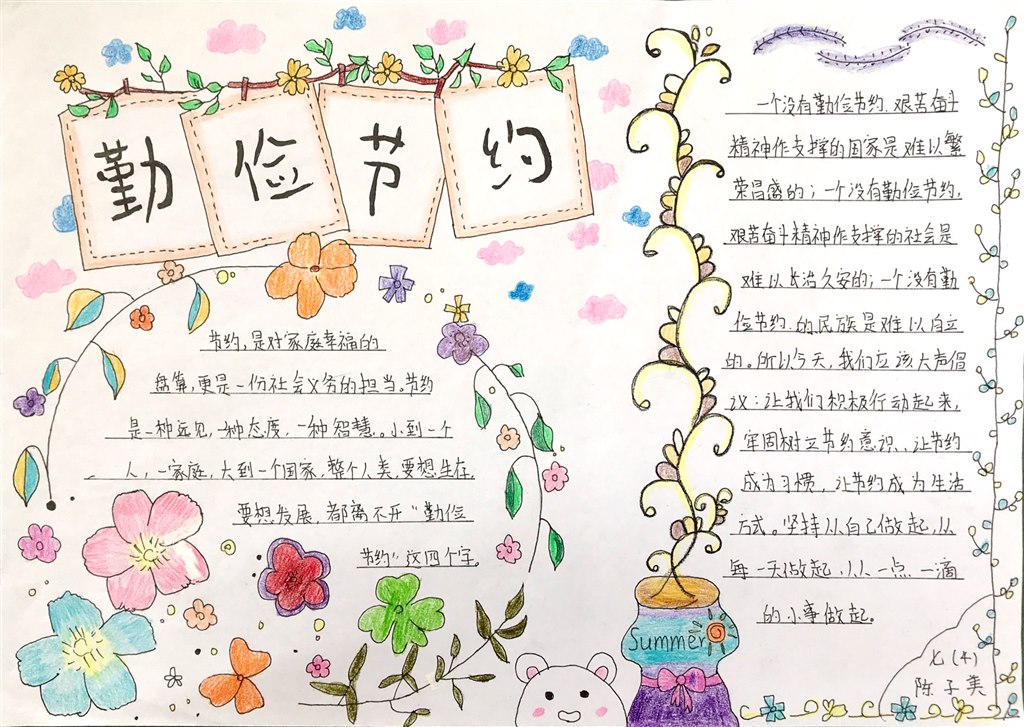 勤 俭 节 约
节约,是对家庭幸福的
盘算,更是一份社会义务的担当。节约
是一种远见,一种态度,一种智慧。小到一个
人,一家庭,大到一个国家,整个人类,要想生存,
要想发展,都离不开“勤俭
节约”这四个字。
一个没有勤俭节约、艰苦奋斗
精神作支撑的国家是难以繁
荣昌盛的;一个没有勤俭节约、
艰苦奋斗精神作支撑的社会是
难以长治久安的;一个没有勤
俭节约、的民族是难以自立
的。所以今天,我们应该大声倡
议:让我们积极行动起来,
牢固树立节约意识、让节约
成为习惯,让节约成为生活
方式。坚持从自己做起,从
每一天做起,从一点一滴
的小事做起。
Summer
七(4)
陈子美